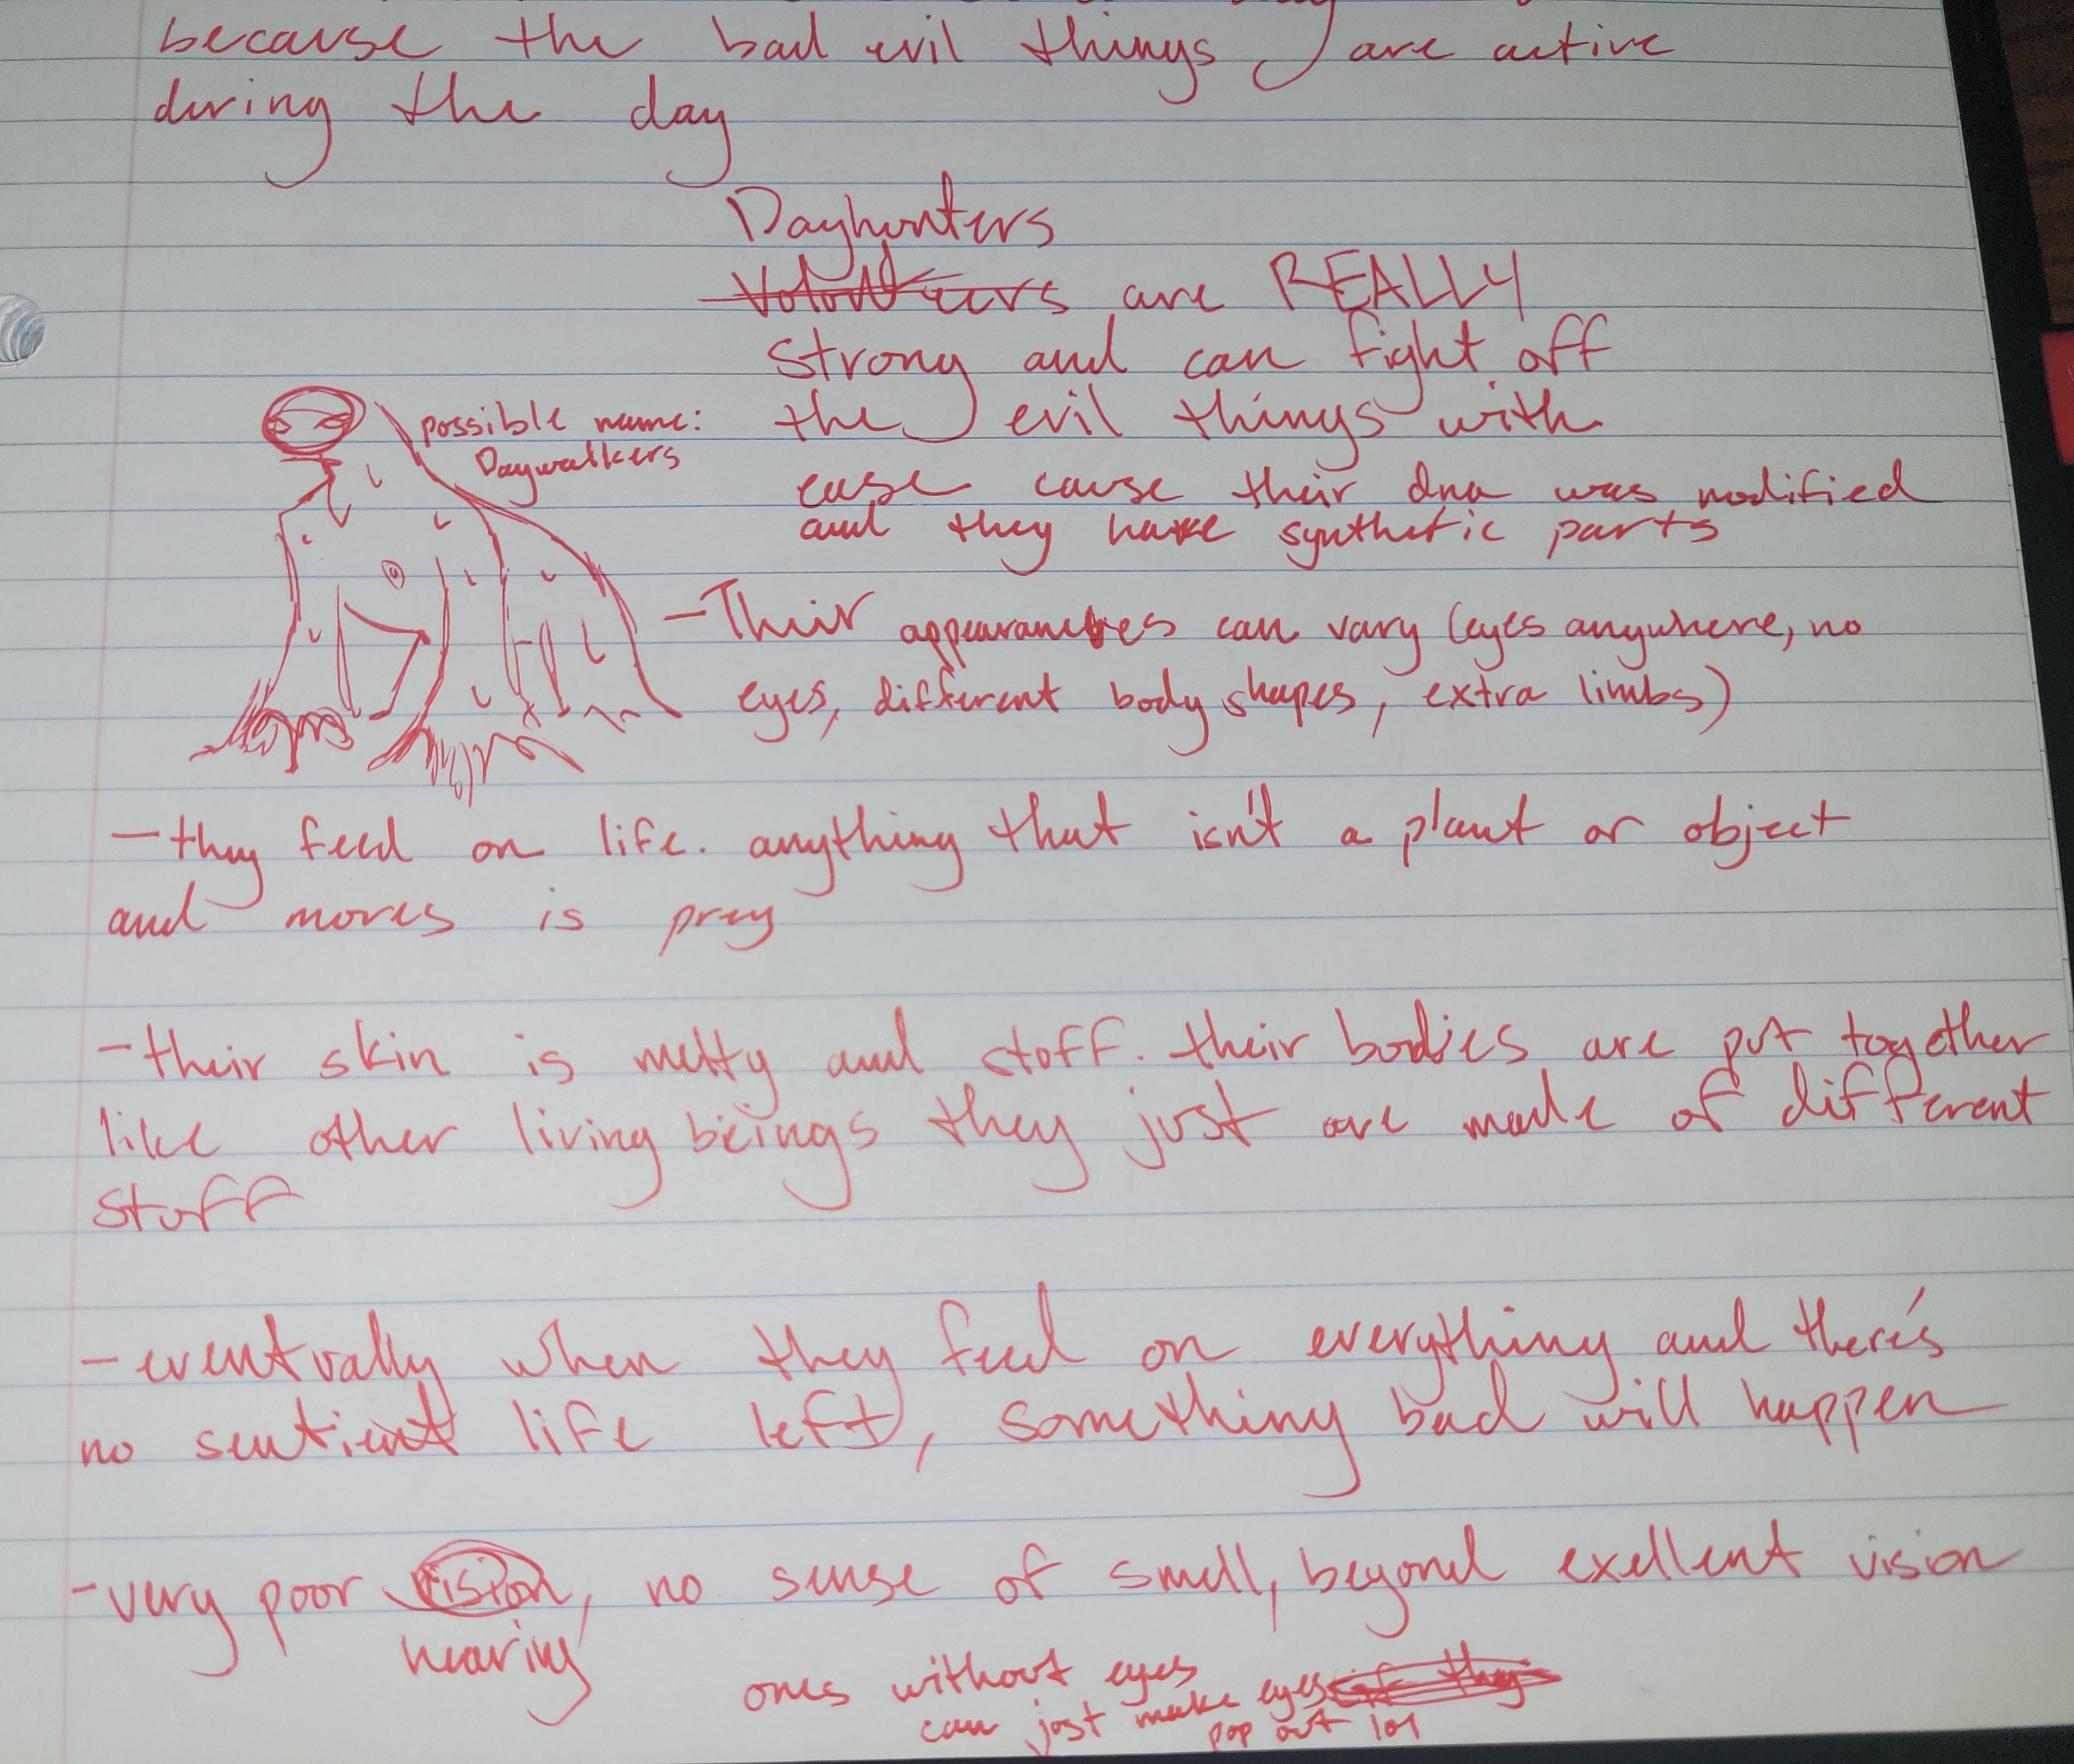 because the bad evil things are active
during the day
Dayhunters
Volunteers are REALLY
strong and can fight off
the evil things with
ease cause their dna was modified
and they have synthetic parts
possible name:
Daywalkers
- Their appearances can vary (eyes anywhere, no
eyes, different body shapes, extra limbs)
- they feed on life. anything that isn't a plant or object
and moves is prey
- their skin is melty and stuff. their bodies are put together
like other living beings they just are made of different
stuff
- eventually when they feed on everything and there's
no sentient life left, something bad will happen
- very poor vision, no sense of smell, beyond exellent vision
hearing
ones without eyes
can just make eyes if they
pop out lol